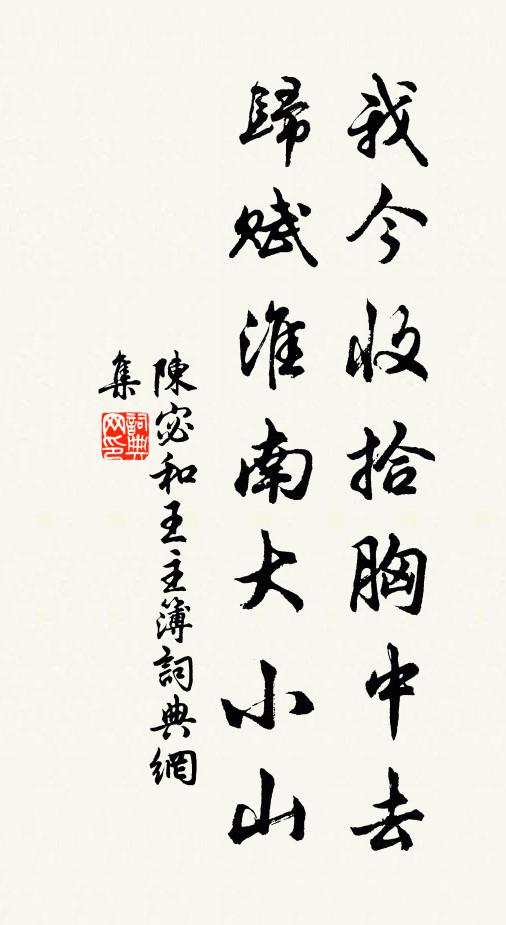 我今收拾胸中去
歸賦淮南大小山
陳宓和王主簿詞典網
集
詞典
网印